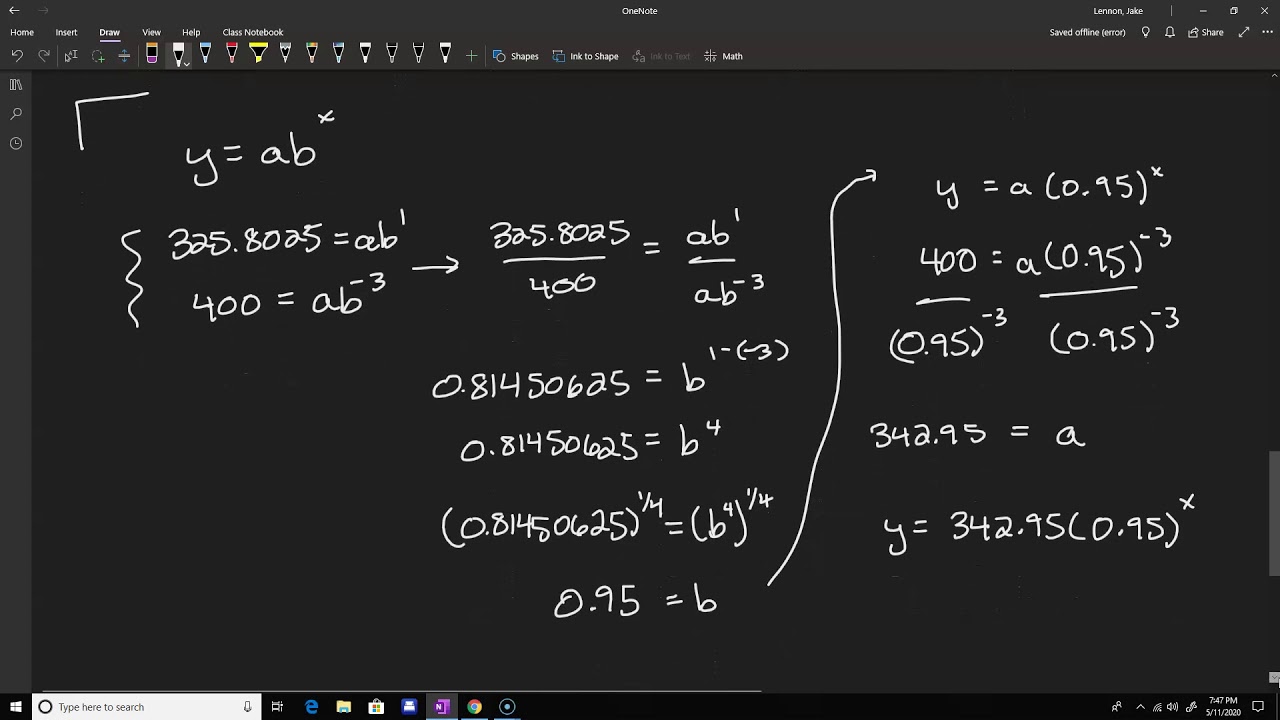 OneNote
Lennon, Jake
Home Insert Draw View Help Class Notebook
Saved offline (error) Share
Shapes Ink to Shape Ink to Text Math
y = ab^x
325.8025 = ab^1
400 = ab^-3
325.8025/400 = ab^1/ab^-3
0.81450625 = b^1-(-3)
0.81450625 = b^4
(0.81450625)^1/4 = (b^4)^1/4
0.95 = b
y = a(0.95)^x
400 = a(0.95)^-3
(0.95)^-3 (0.95)^-3
342.95 = a
y = 342.95(0.95)^x
Type here to search
7:47 PM
5/11/2020